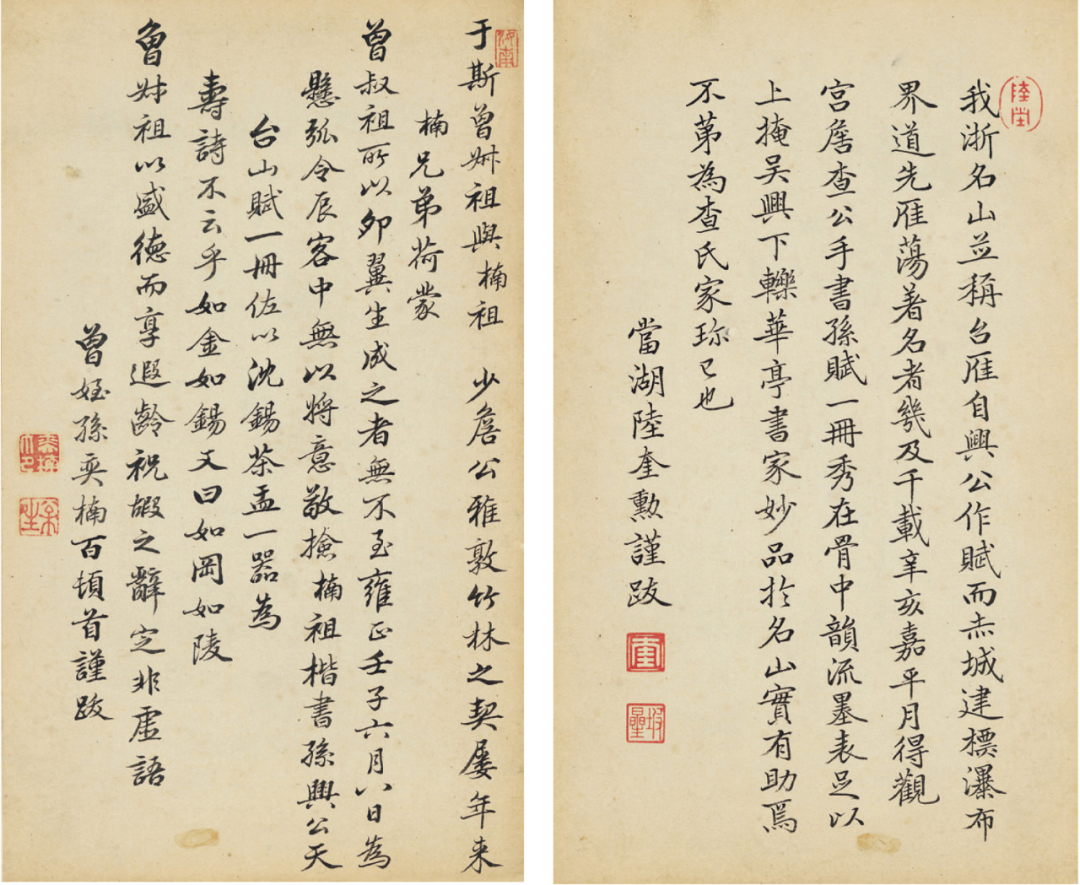 我浙名山並稱台雁自興公作賦而赤城建標瀑布
界道先雁蕩著名者幾及千載辛亥嘉平月得觀
宮詹查公手書孫賦一冊秀在骨中韻流墨表足以
上掩吳興下轢華亭書家妙品於名山實有助焉
不第為查氏家珎已也
當湖陸奎勳謹跋
于斯曾叔祖與楠祖少詹公雅敦竹林之契屢年来
楠兄弟荷蒙
曾叔祖所以卵翼生成之者無不至雍正壬子六月八日為
懸弧令辰客中無以將意敬撿楠祖楷書孫興公天
台山賦一冊佐以沈錫茶盂一器為
壽詩不云乎如金如錫又曰如岡如陵
曾叔祖以盛德而享遐齡祝嘏之辭定非虛語
曾姪孫奕楠百頓首謹跋